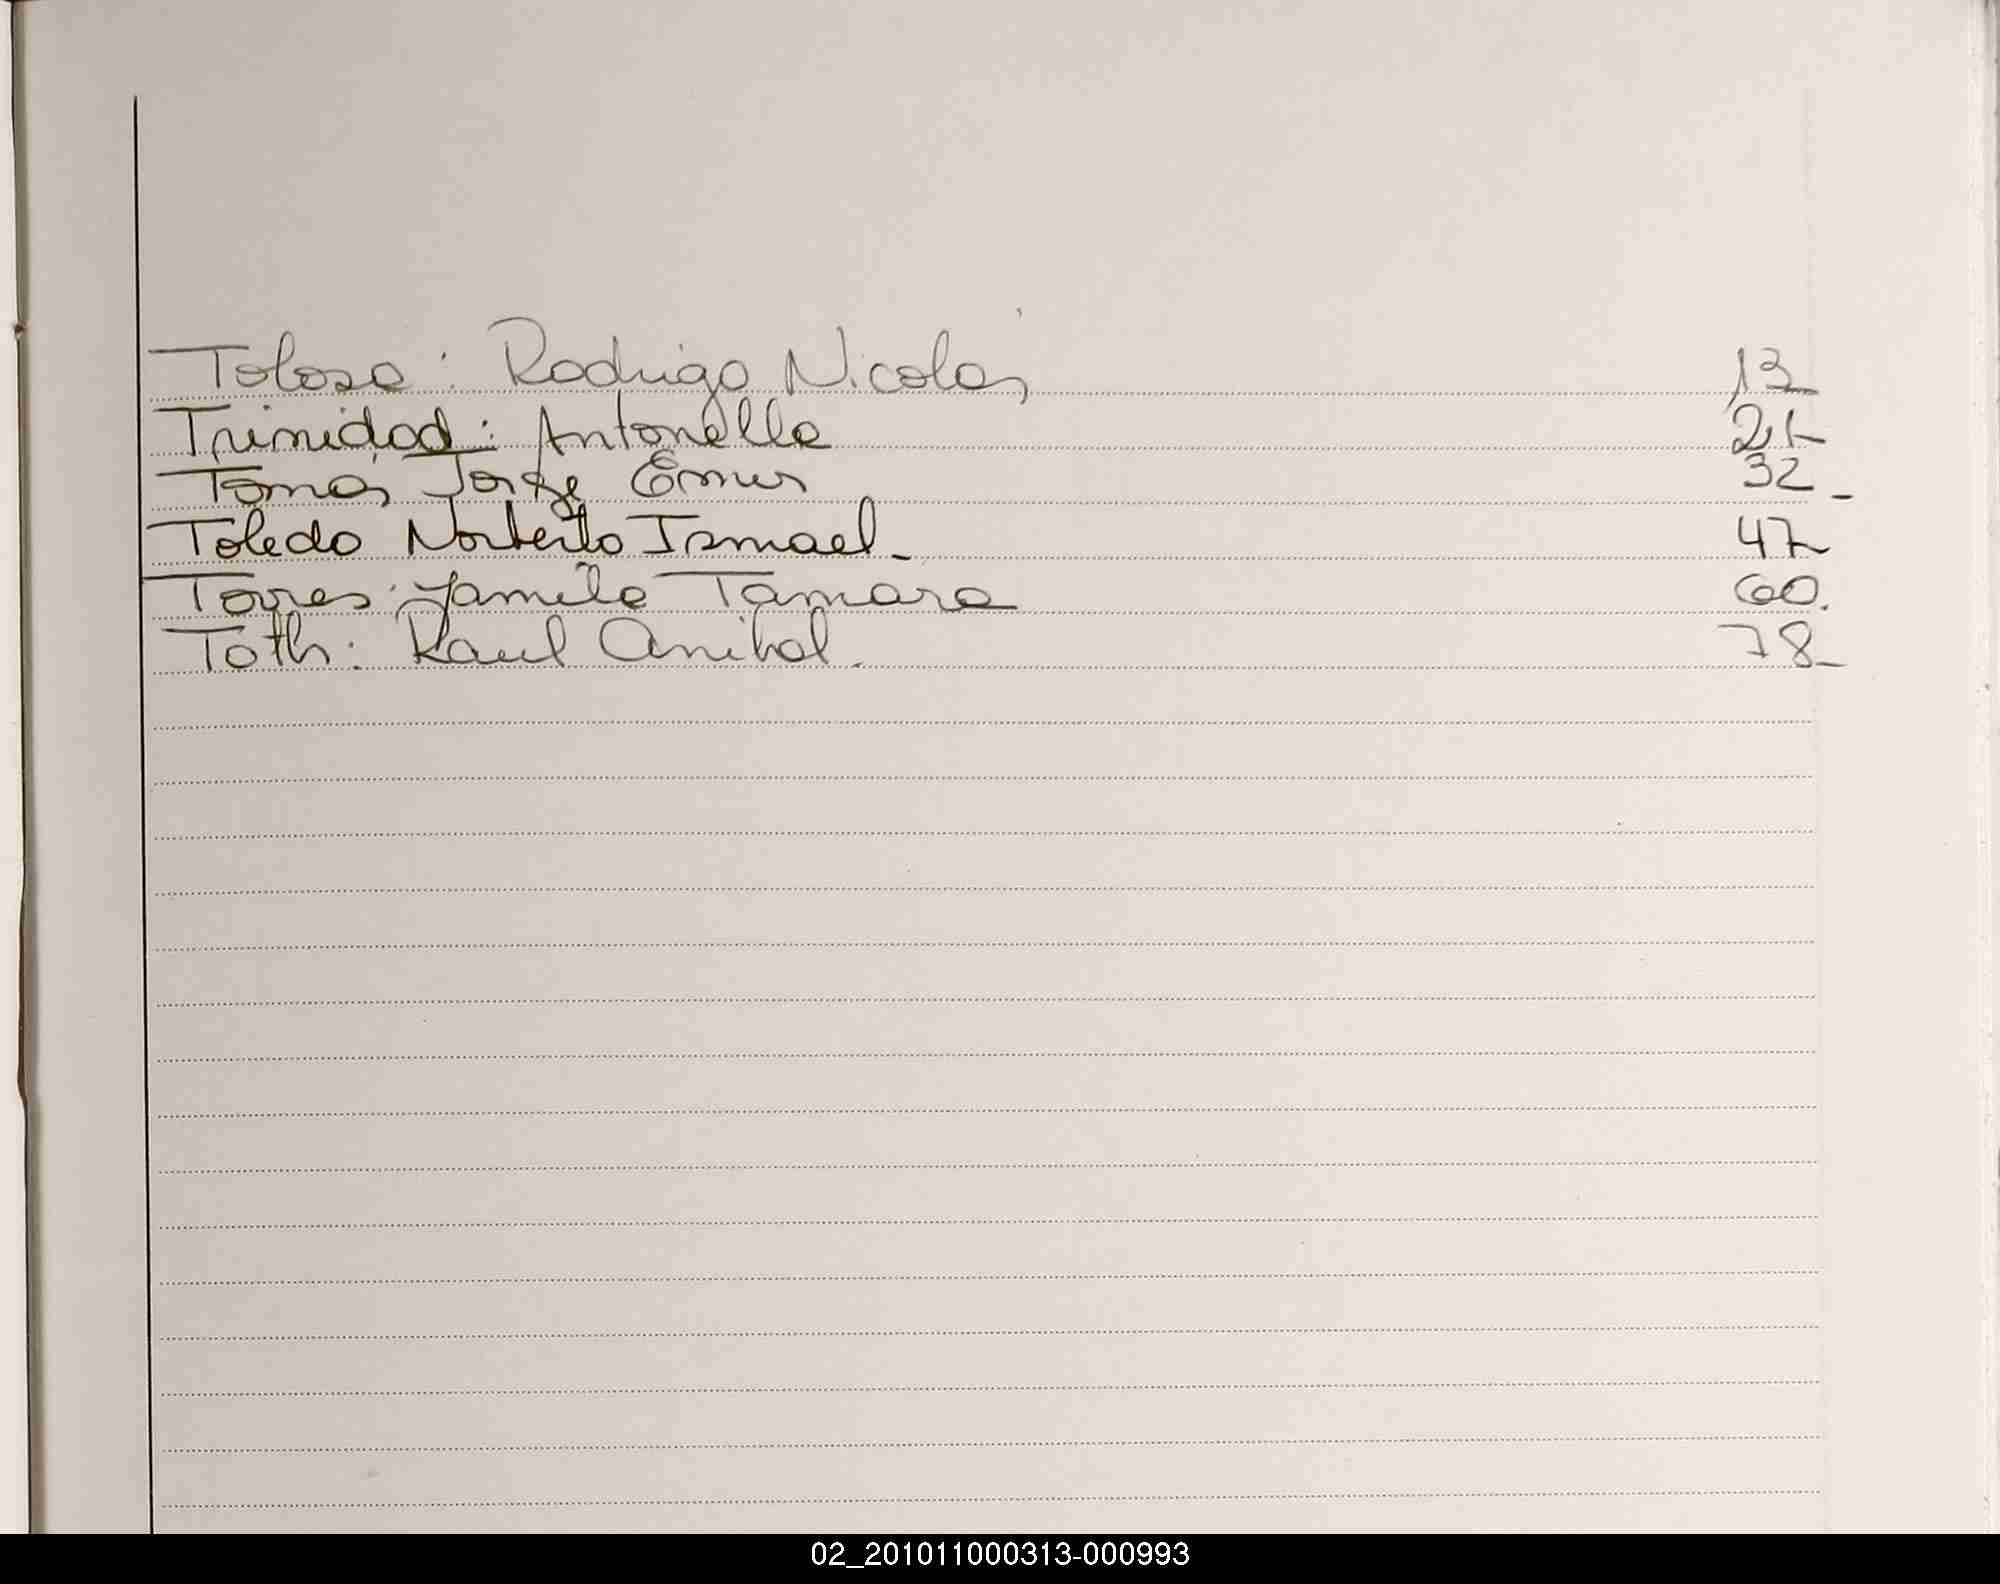 Tolosa: Rodrigo Nicolás 13
Trinidad: Antonella 21
Tomás Jorge 32
Toledo Norberto Ismael 47
Torres: Yamila Tamara 60.
Toth: Raul Anibal. 78
02_201011000313-000993